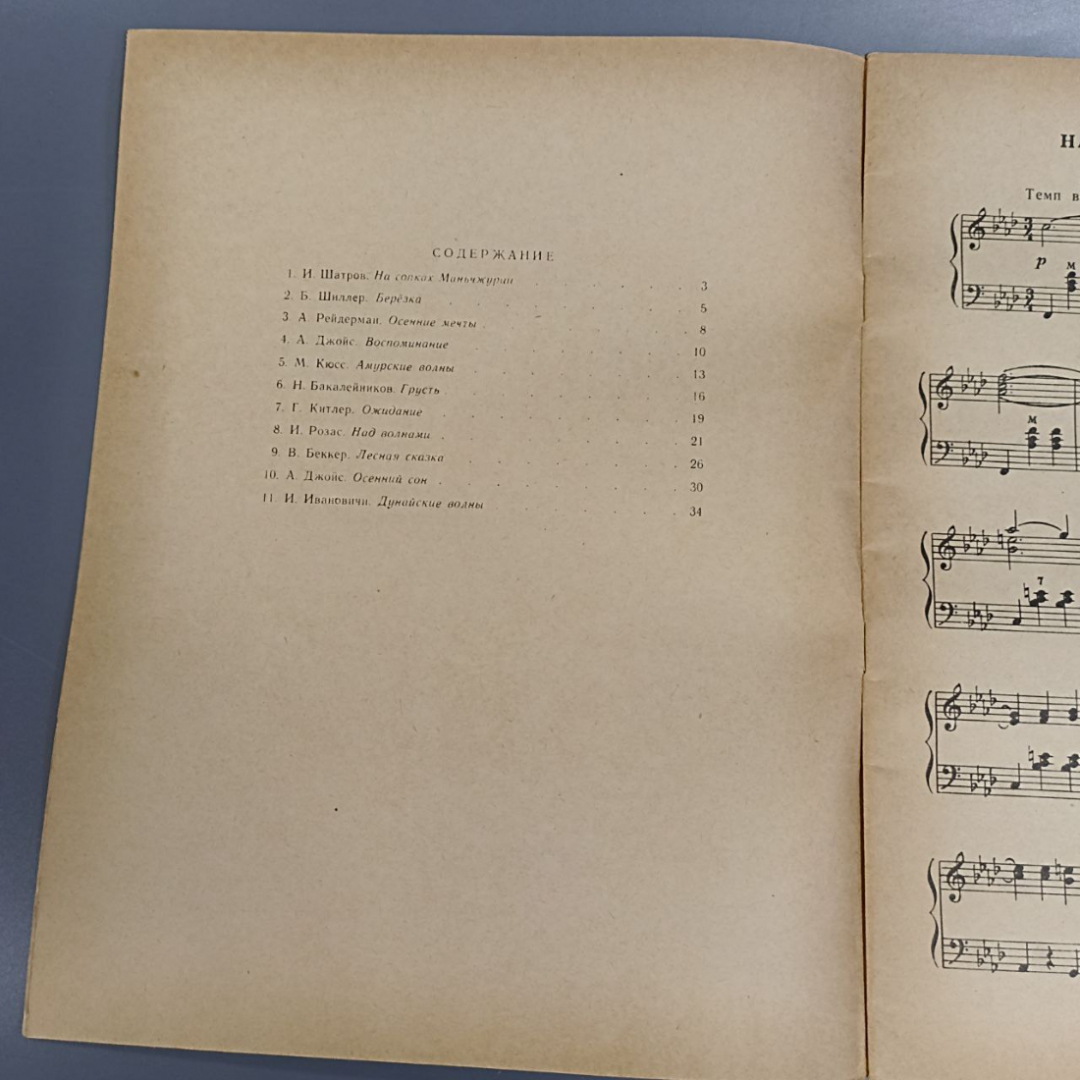 СОДЕРЖАНИЕ
1. И. Шатров. На сопках Маньчжурии 3
2. Б. Шиллер. Берёзка 5
3. А. Рейдерман. Осенние мечты 8
4. А. Джойс. Воспоминание 10
5. М. Кюсс. Амурские волны 13
6. Н. Бакалейников. Грусть 16
7. Г. Китлер. Ожидание 19
8. И. Розас. Над волнами 21
9. В. Беккер. Лесная сказка 26
10. А. Джойс. Осенний сон 30
11. И. Ивановичи. Дунайские волны 34
НА
Темп в
3
4
p
м
3
4
м
7